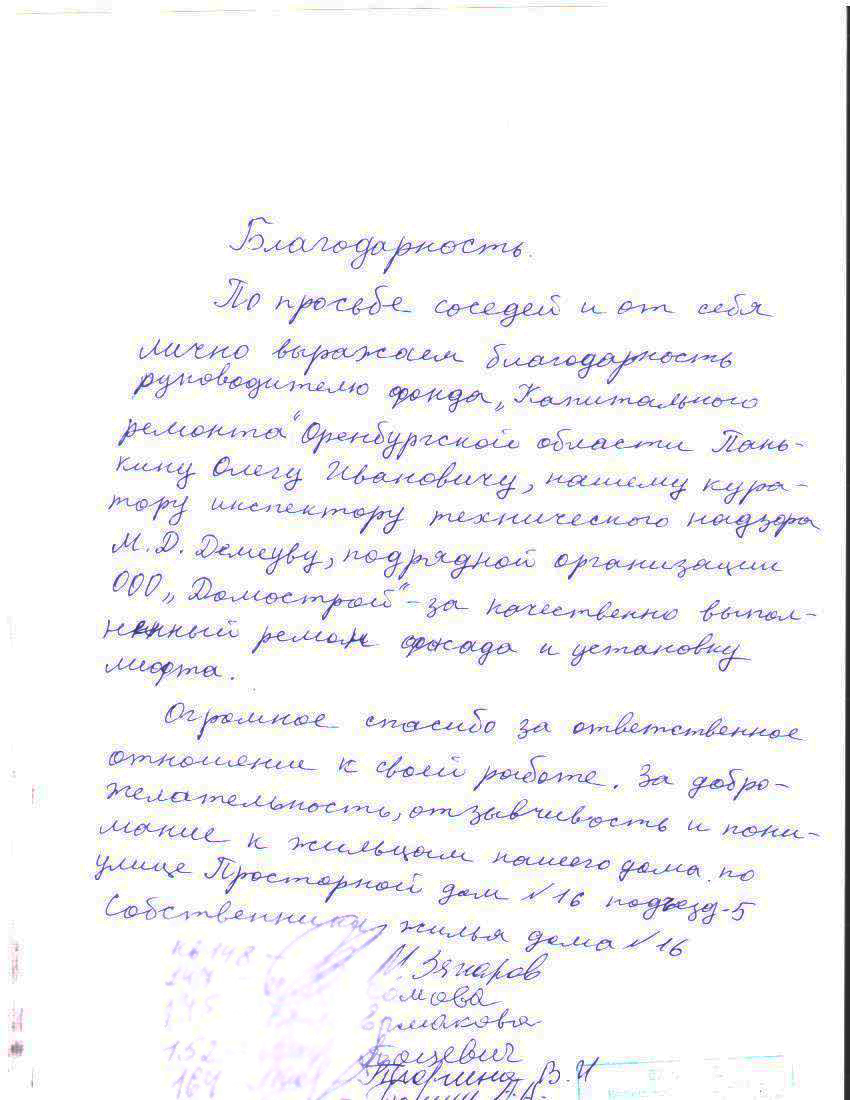 Благодарность.
По просьбе соседей и от себя
лично выражаем благодарность
руководителю фонда „Капитального
ремонта“ Оренбургской области Пань-
кину Олегу Ивановичу, нашему кура-
тору инспектору технического надзора
М.Д. Демеуву, подрядной организации
ООО „Домострой“ - за качественно выпол-
ненный ремон фасада и установку
лифта.
Огромное спасибо за ответственное
отношение к своей работе. За добро-
желательность, отзывчивость и пони-
мание к жильцам нашего дома по
улице Просторной дом №16 подъезд-5
Собственники жилья дома №16
кв 148 -
147 Сомова
145 Ермакова
152
164 В.И